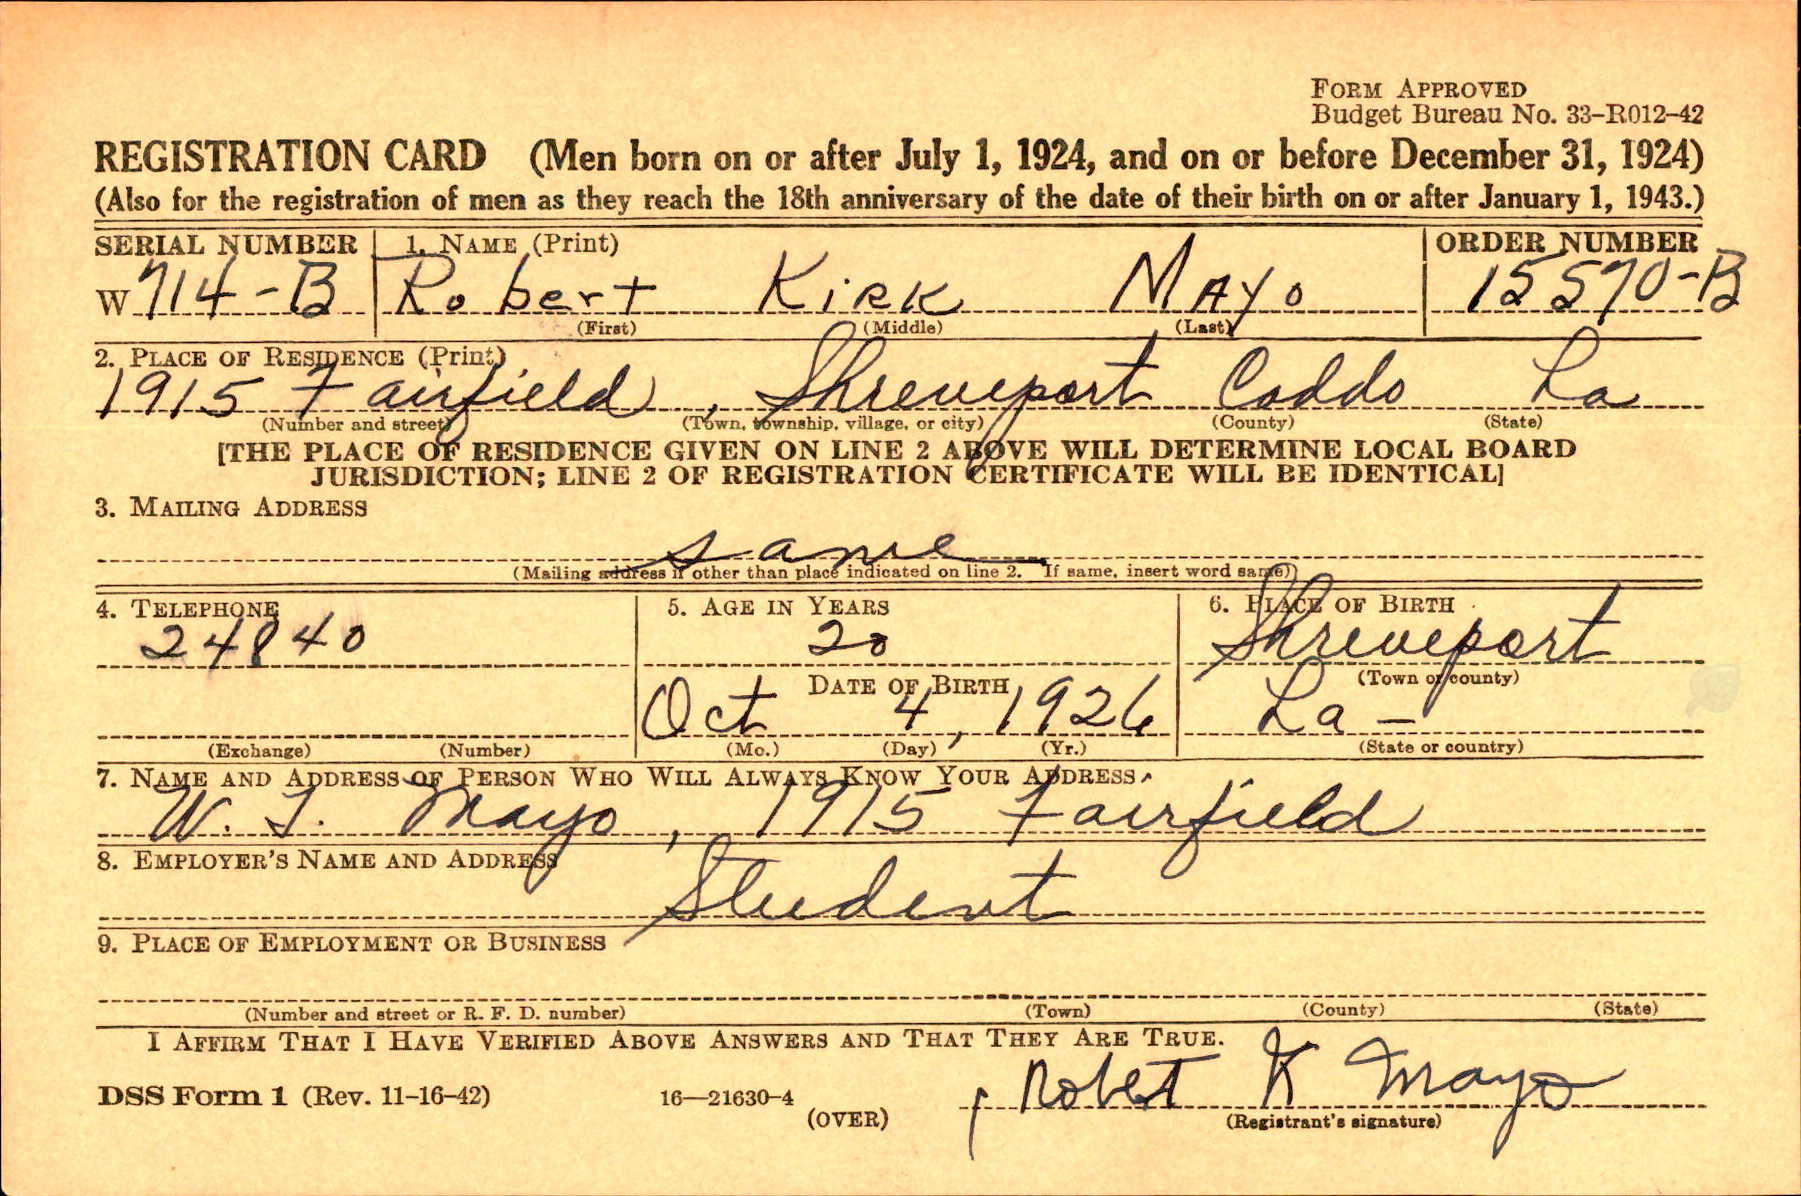 FORM APPROVED
Budget Bureau No. 33-R012-42
REGISTRATION CARD (Men born on or after July 1, 1924, and on or before December 31, 1924)
(Also for the registration of men as they reach the 18th anniversary of the date of their birth on or after January 1, 1943.)
SERIAL NUMBER 1. NAME (Print) ORDER NUMBER
W 714-B Robert Kirk Mayo 15570-B
(First) (Middle) (Last)
2. PLACE OF RESIDENCE (Print)
1915 Fairfield, Shreveport Caddo La
(Number and street) (Town, township, village, or city) (County) (State)
[THE PLACE OF RESIDENCE GIVEN ON LINE 2 ABOVE WILL DETERMINE LOCAL BOARD
JURISDICTION; LINE 2 OF REGISTRATION CERTIFICATE WILL BE IDENTICAL]
3. MAILING ADDRESS
same
(Mailing address if other than place indicated on line 2. If same, insert word same)
4. TELEPHONE 5. AGE IN YEARS 6. PLACE OF BIRTH
24840 20 Shreveport
DATE OF BIRTH (Town or county)
Oct 4, 1926 La-
(Exchange) (Number) (Mo.) (Day) (Yr.) (State or country)
7. NAME AND ADDRESS OF PERSON WHO WILL ALWAYS KNOW YOUR ADDRESS
W. I. Mayo, 1915 Fairfield
8. EMPLOYER'S NAME AND ADDRESS
Student
9. PLACE OF EMPLOYMENT OR BUSINESS
(Number and street or R. F. D. number) (Town) (County) (State)
I AFFIRM THAT I HAVE VERIFIED ABOVE ANSWERS AND THAT THEY ARE TRUE.
DSS Form 1 (Rev. 11-16-42) 16—21630-4 Robert K Mayo
(OVER) (Registrant's signature)